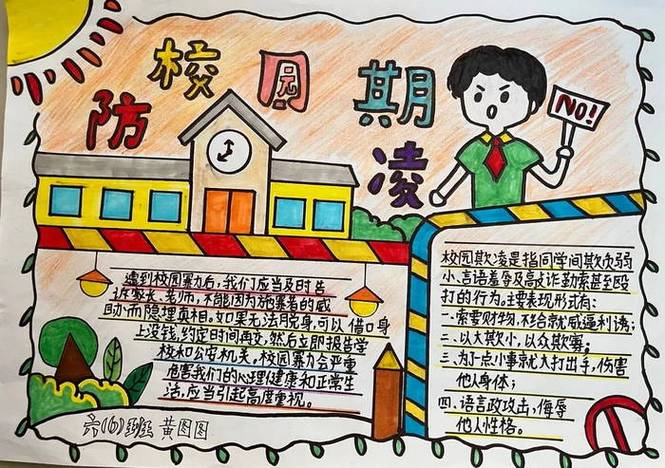 防校园期凌
NO!
遇到校园暴力后，我们应当及时告
诉家长、老师，不能因为施暴者的威
胁而隐埋真相，如果无法脱身，可以借口身
上没钱，约定时间再交，然后立即报告学
校和公安机关，校园暴力会严重
危害我们的心理健康和正常生
活，应当引起高度重视。
校园欺凌是指同学间欺负弱
小、言语羞辱及敲诈勒索甚至殴
打的行为，主要表现形式有：
一.索要财物，不给就威逼利诱；
二、以大欺小，以众欺寡；
三、为了点小事就大打出手，伤害
他人身体；
四、语言攻击，侮辱
他人性格。
班 黄图图